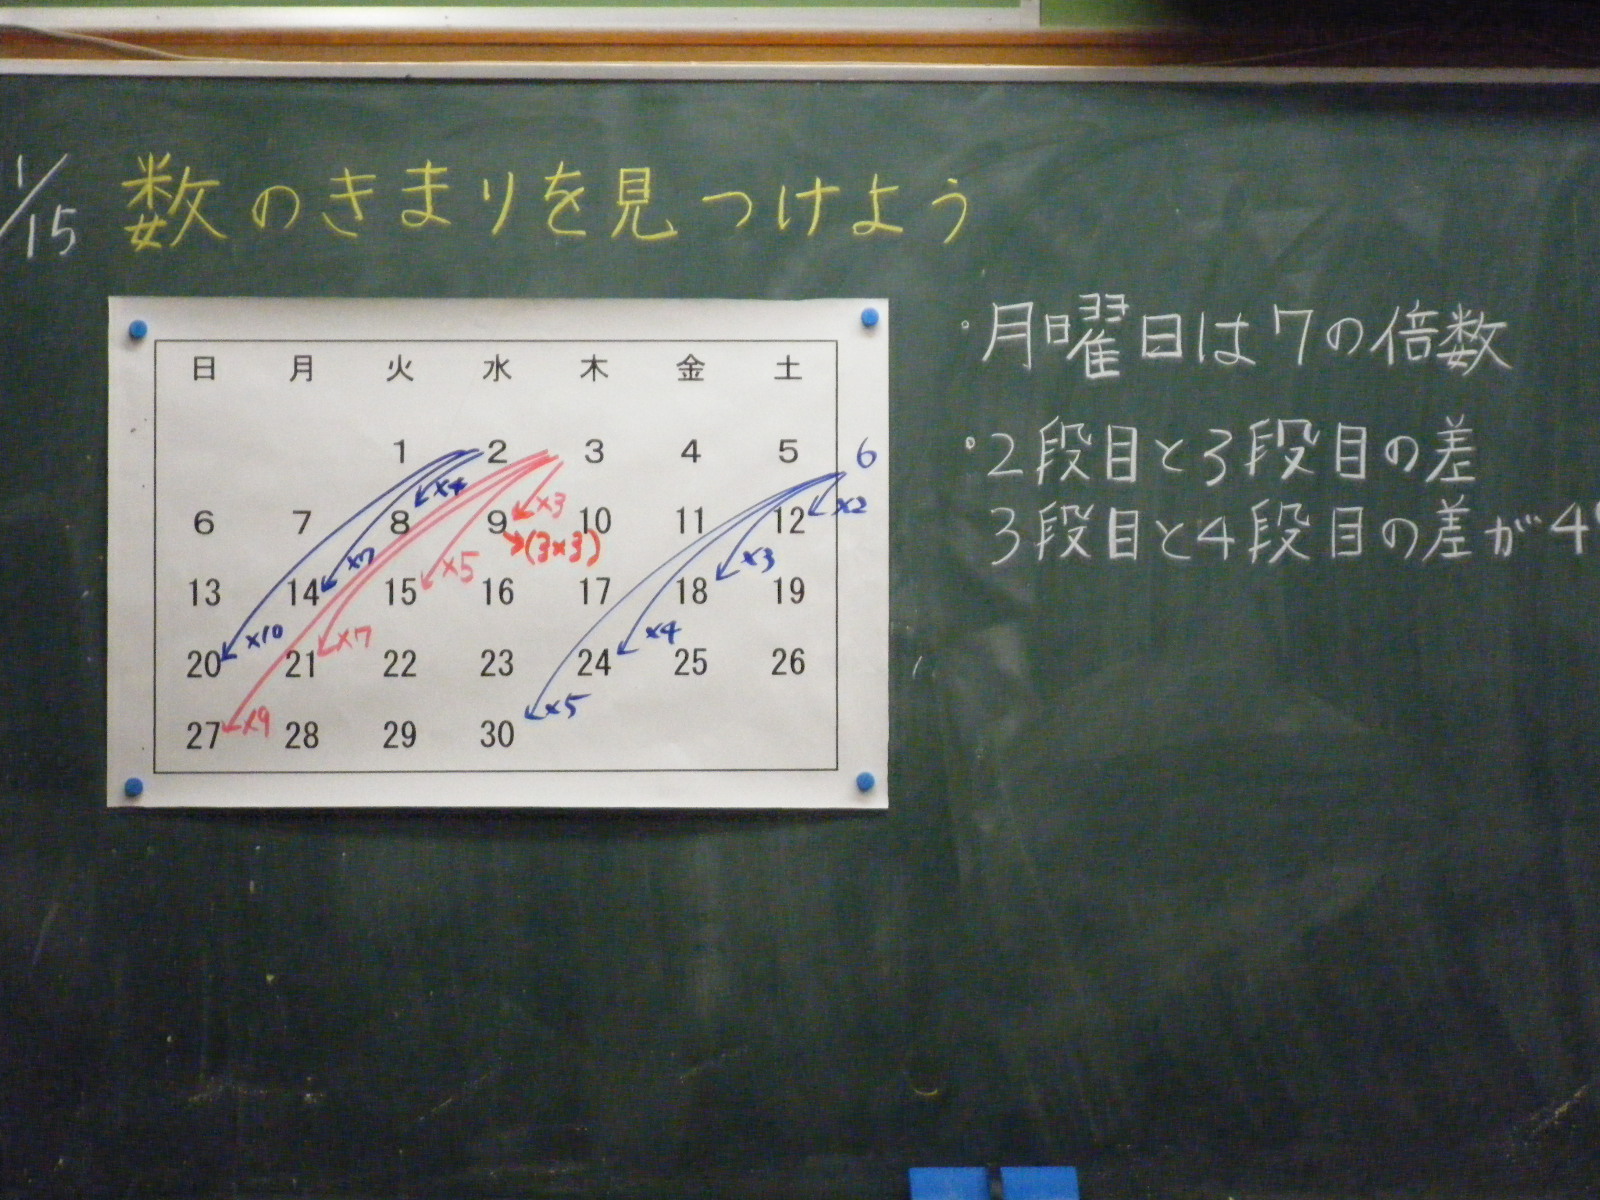 1/15 数のきまりを見つけよう
日 月 火 水 木 金 土
1 2 3 4 5 6
×4 ×2
6 7 8 9 10 11 12
×3
(3×3)
×7 ×5 ×3
13 14 15 16 17 18 19
×10 ×7 ×4
20 21 22 23 24 25 26
×9 ×5
27 28 29 30
・月曜日は7の倍数
・2段目と3段目の差
3段目と4段目の差が4